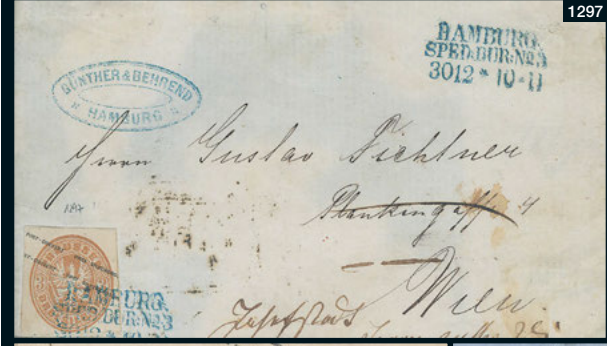 1297
HAMBURG.
SPED:BUR:No3
3012 * 10-11
GÜNTHER & BEHREND
HAMBURG
Herrn Gustav Pichtner
Plankengasse 4
Wien
Josefstadt
HAMBURG.
SPED:BUR:No3